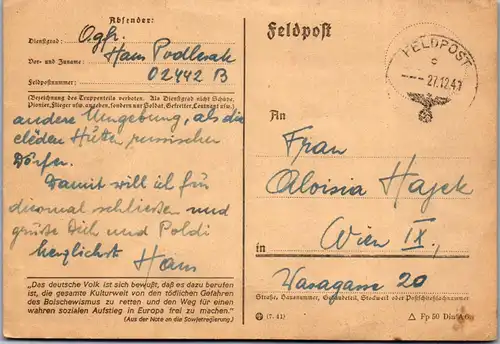 Absender:
Dienstgrad: Ogfr.
Vor- und Zuname: Hans Podlesak
Feldpostnummer: 02442 B
(Bezeichnung des Truppenteils verboten. Als Dienstgrad nicht Schütze,
Pionier, Flieger usw. angeben, sondern nur Soldat, Gefreiter, Leutnant usw.)
andere Umgebung, als die
elëden Hütten russischer
Dörfer.
Damit will ich für
diesmal schließen und
grüße Dich und Poldi
herzlichst Hans
„Das deutsche Volk ist sich bewußt, daß es dazu berufen
ist, die gesamte Kulturwelt von den tödlichen Gefahren
des Bolschewismus zu retten und den Weg für einen
wahren sozialen Aufstieg in Europa frei zu machen."
(Aus der Note an die Sowjetregierung)
Feldpost
FELDPOST
c
27.12.41
An
Frau
Aloisia Hajek
in Wien IX,
Wasagasse 20
Straße, Hausnummer, Gebäudeteil, Stockwerk oder Postschließfachnummer
(7. 41)
Fp 50 Din